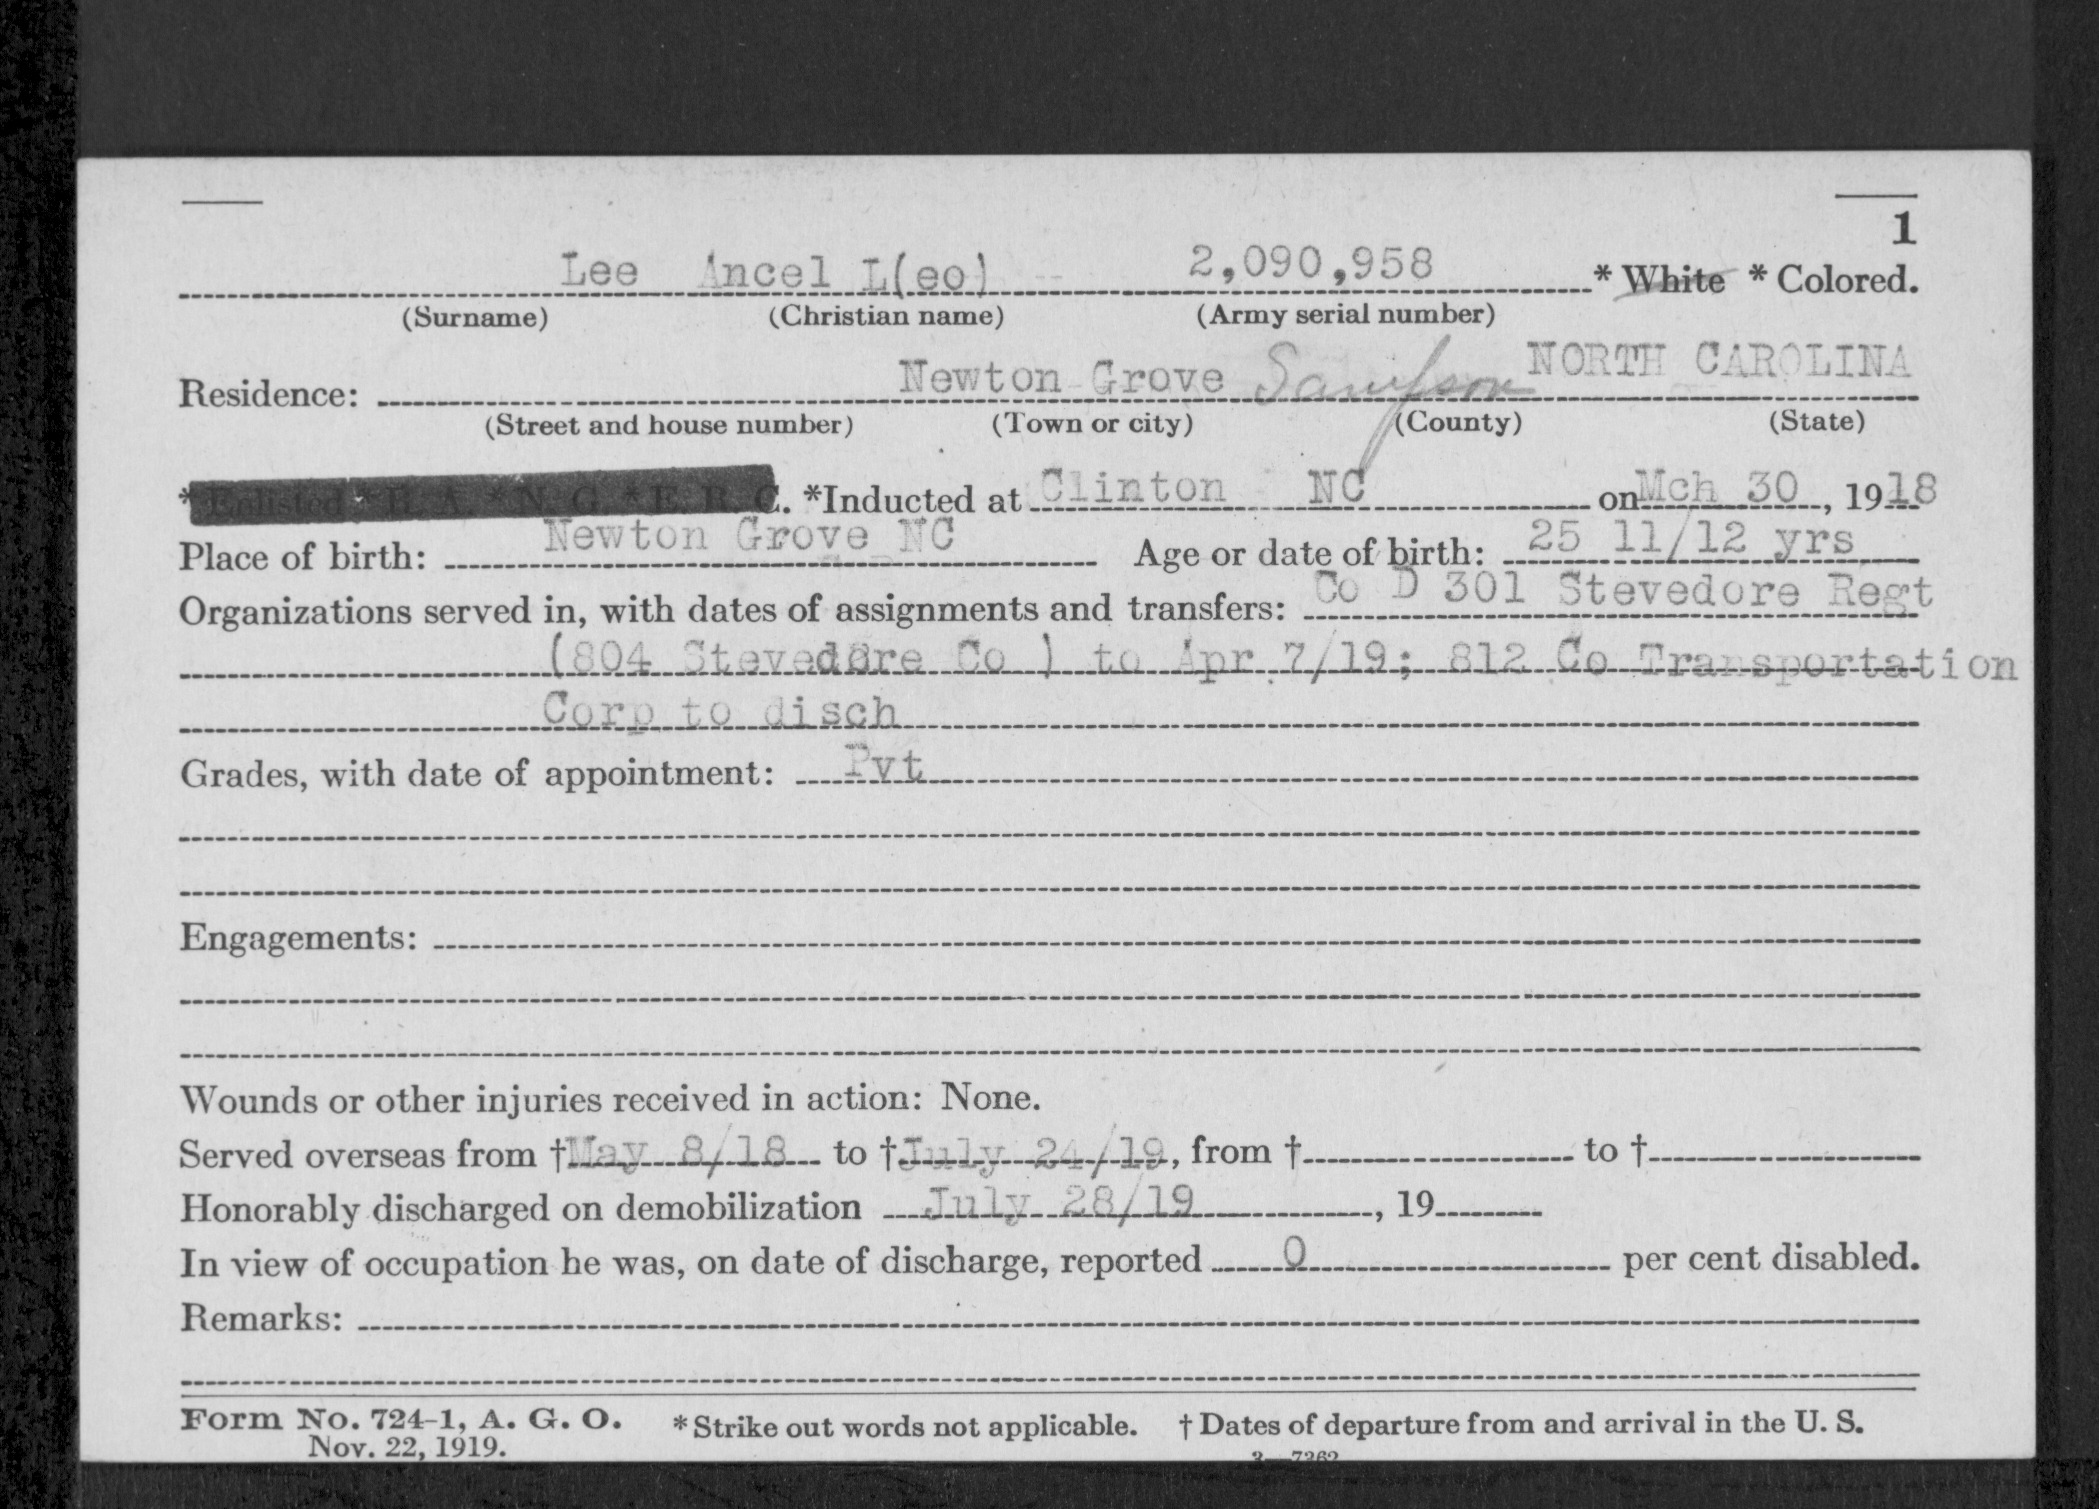 1
Lee Ancel L(eo) 2,090,958 * White * Colored.
(Surname) (Christian name) (Army serial number)
Residence: Newton Grove Sampson NORTH CAROLINA
(Street and house number) (Town or city) (County) (State)
* Enlisted * R. A. * N. G. * E. R. C. *Inducted at Clinton NC on Mch 30, 1918
Place of birth: Newton Grove NC Age or date of birth: 25 11/12 yrs
Organizations served in, with dates of assignments and transfers: Co D 301 Stevedore Regt
(804 Stevedore Co ) to Apr 7/19; 812 Co Transportation
Corp to disch
Grades, with date of appointment: Pvt
Engagements:
Wounds or other injuries received in action: None.
Served overseas from † May 8/18 to † July 24/19, from † to †
Honorably discharged on demobilization July 28/19, 19
In view of occupation he was, on date of discharge, reported 0 per cent disabled.
Remarks:
Form No. 724-1, A. G. O. * Strike out words not applicable. † Dates of departure from and arrival in the U. S.
Nov. 22, 1919. 3—7362